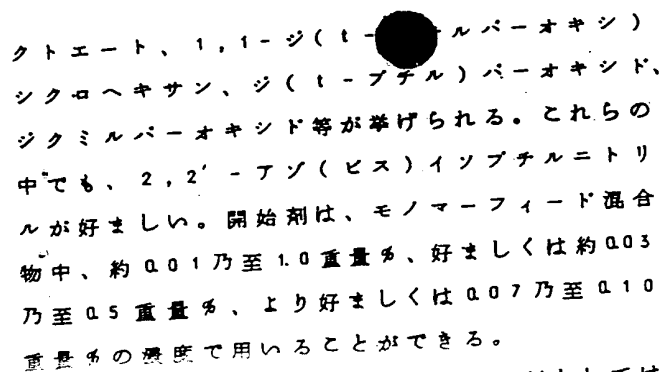 クトエート、1,1-ジ(t-ルパーオキシ)
シクロヘキサン、ジ(t-ブチル)パーオキシド、
ジクミルパーオキシド等が挙げられる。これらの
中でも、2,2′-アゾ(ビス)イソブチルニトリ
ルが好ましい。開始剤は、モノマーフィード混合
物中、約0.01乃至1.0重量%、好ましくは約0.03
乃至0.5重量%、より好ましくは0.07乃至0.10
重量%の濃度で用いることができる。